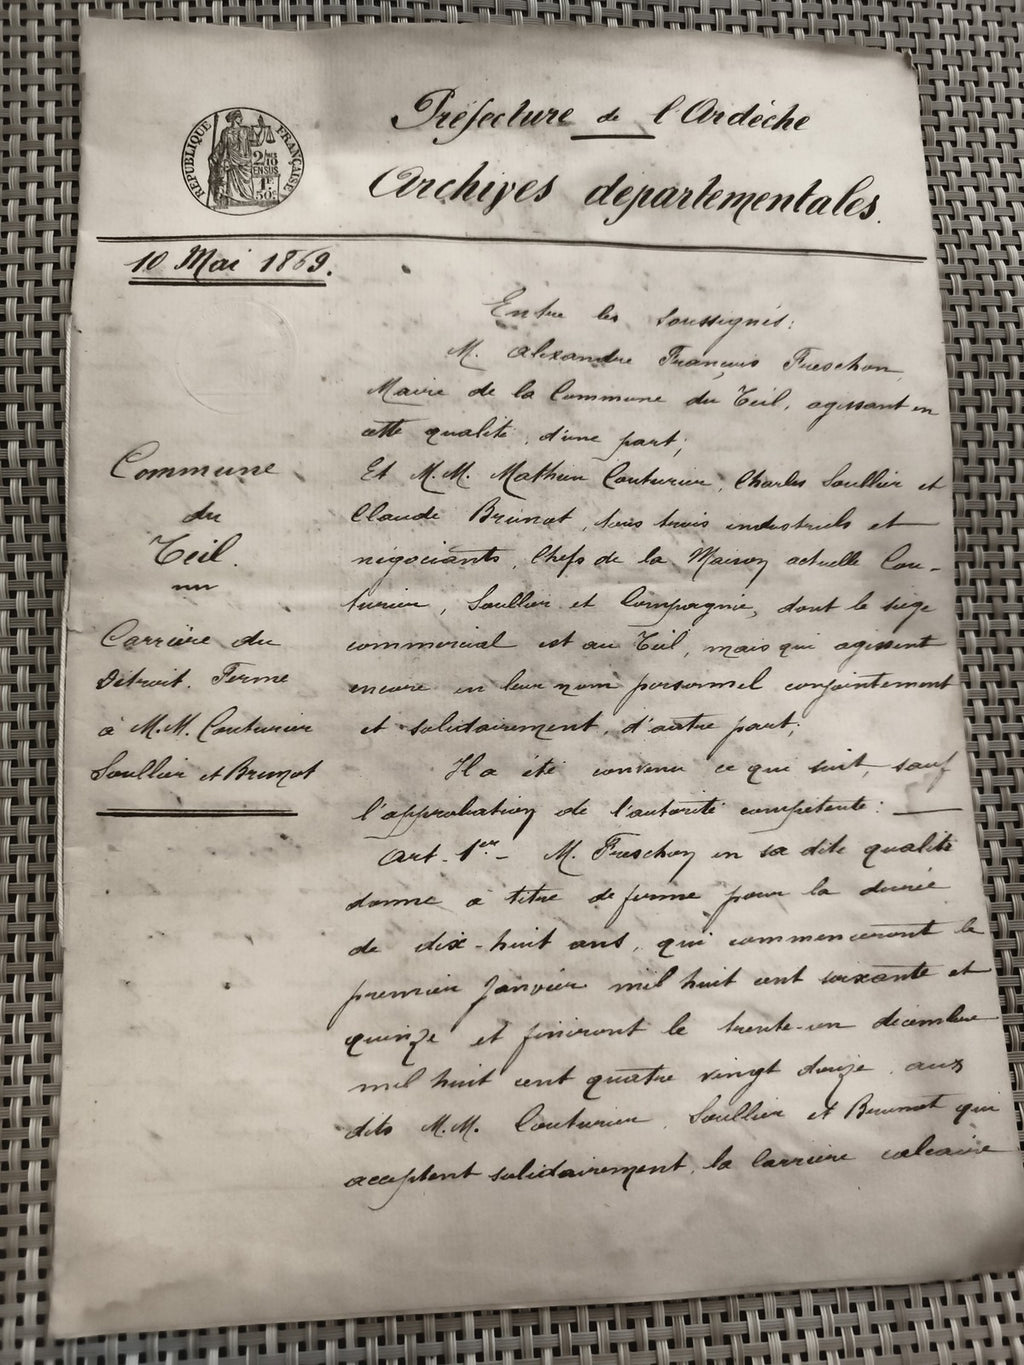 Préfecture de l'Ardèche
Archives départementales.
REPUBLIQUE FRANÇAISE
2/10
EN SUS
1F
50c
10 Mai 1869.
Commune
du
Teil.
Carrière du
Détroit. Ferme
à M.M. Couturier
Soullier et Brunot
Entre les soussignés:
M. Alexandre François Freschon,
Maire de la Commune du Teil, agissant en
cette qualité, d'une part;
Et M.M. Mathieu Couturier, Charles Soullier et
Claude Brunot, tous trois industriels et
négociants, Chefs de la Maison actuelle Cou-
turier, Soullier et Compagnie, dont le siège
commercial est au Teil, mais qui agissent
encore en leur nom personnel conjointement
et solidairement, d'autre part;
Il a été convenu ce qui suit, sauf
l'approbation de l'autorité compétente:
Art. 1er - M. Freschon en sa dite qualité
donne à titre de ferme pour la durée
de dix-huit ans, qui commenceront le
premier Janvier mil huit cent soixante et
quinze et finiront le trente-un décembre
mil huit cent quatre vingt douze, aux
dits M.M. Couturier, Soullier et Brunot qui
acceptent solidairement, la Carrière calcaire